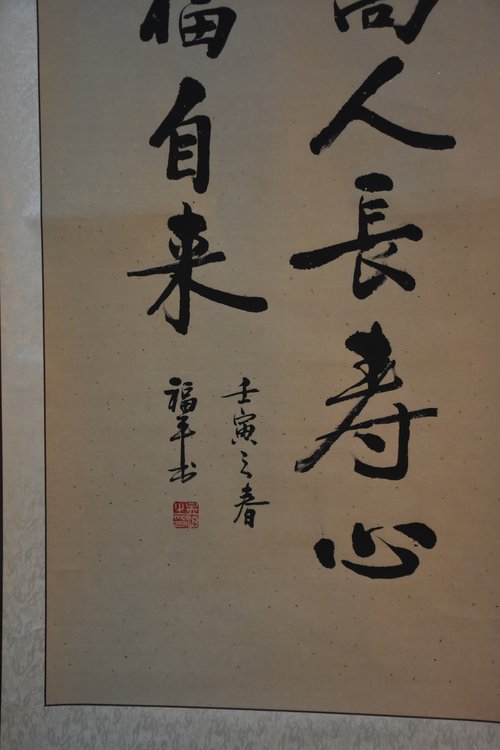 高人長寿心
福自来
壬寅之春
福平书